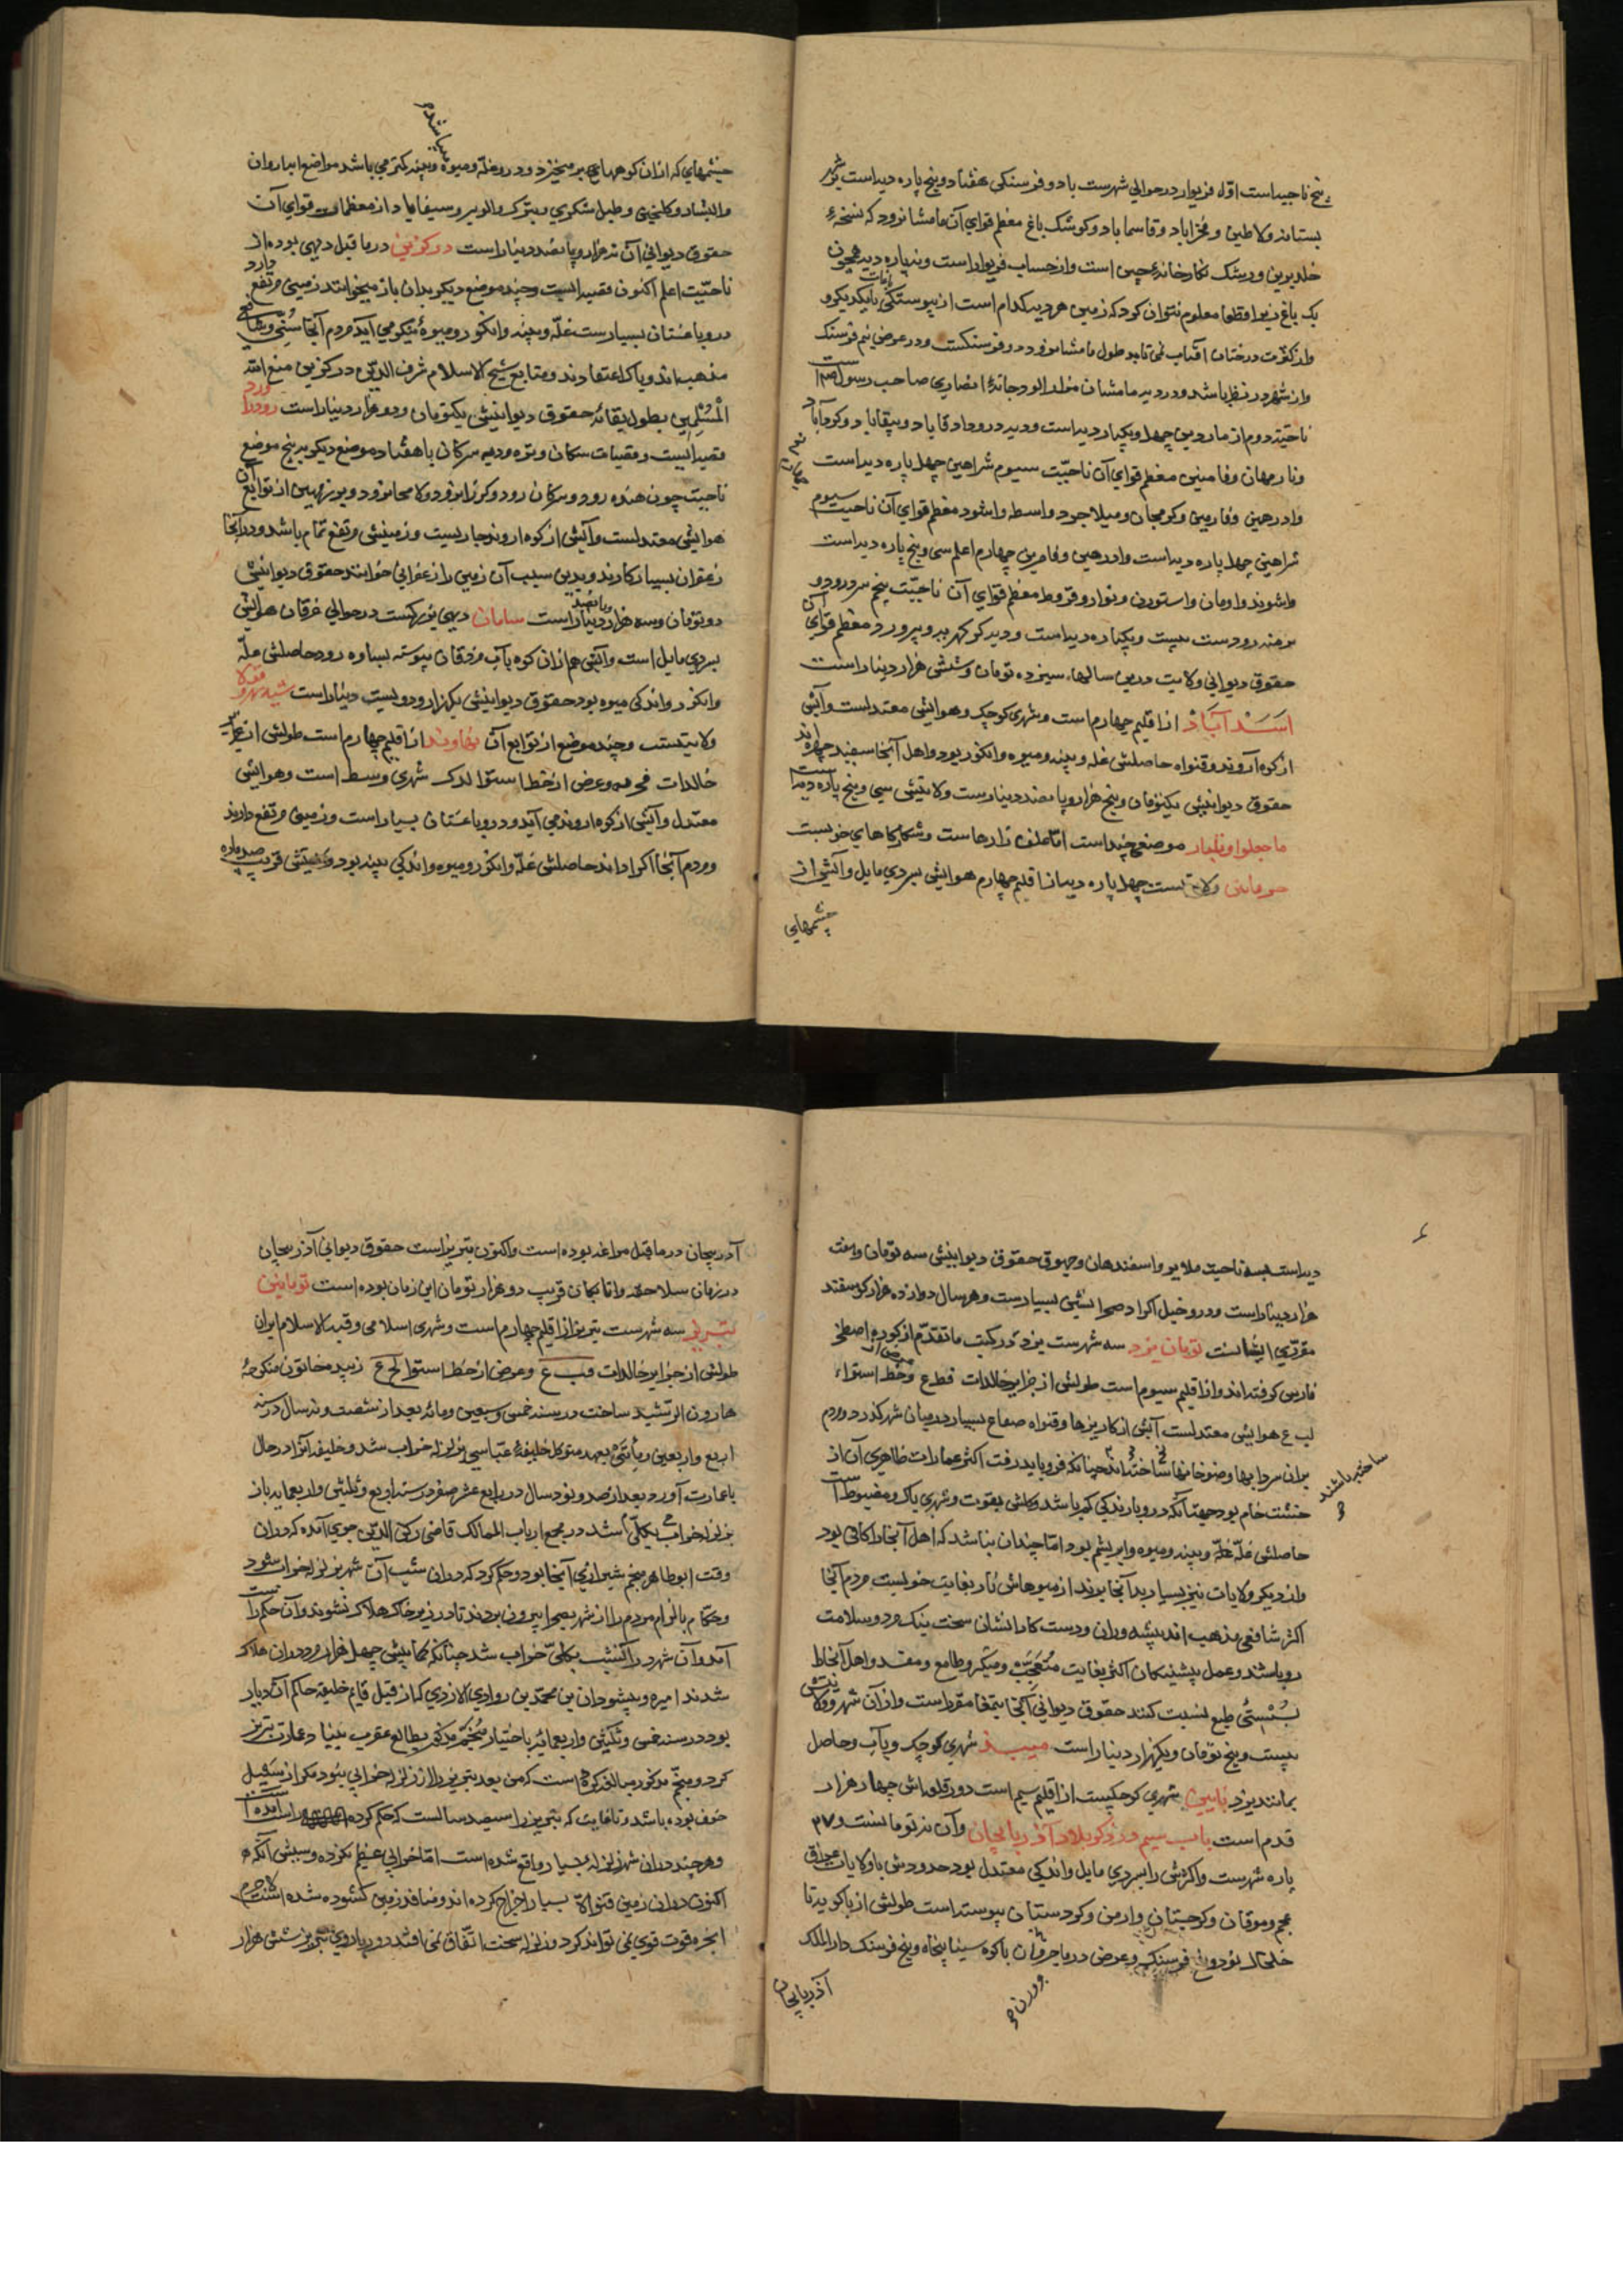 پنج ناحیه است اول فریوار در حوالی شهرست بادو فرسنکی هفتاد و پنج پاره دیه است شهر
بستانه ولاطین و فخراباد و قاسماباد و کوشک باغ معظم قرای آن مامشانرود که نسخهٔ
خلد برین و رشک نکارخانهٔ چین است و از حساب فریوار است و نه پاره دیه همچون
یک باغ قطعا معلوم نتوان کرد که زمین هر دیه کدام است از پیوستکی باغات بایکدیکرو
واز کثرت درختان افتاب نمی تابد طول مامشانرود دو فرسنکست و در عرض نیم فرسنک
واز شهر در نظر باشد و در دیه مامشان مولد ابودجانهٔ انصاری صاحب رسول است
ناحیت دوم ازمادین چهل و یکپاره دیه است و دیه درودا دقاباد و بیقاباد و کردآباد
وناد مهان وفامنین معظم قرای آن ناحیت سیوم شراهین چهل پاره دیه است
وادرهین وفارمین وکومجان ومیلاجرد واسطه واشود معظم قرای آن ناحیت سیوم
شراهین چهل پاره دیه است وادرهین وفامرین چهارم اعلم سی و پنج پاره دیه است
واشوند واومان واستورن ونوار وقروط معظم قرای آن ناحیت پنجم سردرود و
برهند رودست بیست و یکپاره دیه است و دیه کوکهر یه و پیرورد معظم قرای آن
حقوق دیوانی ولایت درین سالها سیزده تومان و شش هزار دینار است
اسدآباد از اقلیم چهارم است و شهری کوچک و هوایش معتدلست و آبش
از کوه اروند و قنواه حاصلش غله و پنبه و میوه و انکور بود و اهل آنجا سفید چهره اند
حقوق دیوانیش یکتومان و پنج هزار و پانصد دینارست ولایتش سی و پنج پاره دیه است
ماجیلو اوتلیار موضعی چند است اما علف زارهاست و شکارکاهای خوبست
خرمابتن ولایتست چهل پاره دیه از اقلیم چهارم هوایش بسردی مایل و آبش از
چشمهای
چشمهای که ازان کوهها بر میخیزد و درو غله و میوه و پنبه کمتر می باشد مواضع انباروان
والبشاد و کلنجین و طبل شکری و بترک والوبر و سیفاباد از معظمات قرای آن
حقوق دیوانی آن نه هزار و پانصد دینار است درکزین در ما قبل دیهی بوده از
ناحیت اعلم اکنون قصبه ایست و چند موضع دیکر بدان باز میخوانند زمینی مرتفع دارد
درو باغستان بسیارست غله و پنبه وانکور و میوهٔ نیکو می آید مردم آنجا سنی و شافعی
مذهب اند و پاک اعتقادند و متابع شیخ الاسلام شرف الدین درکزینی متع الله
المسلمین بطول بقائه حقوق دیوانیش یکتومان و دو هزار دینار است رودراورد
قصبه ایست و قصبات سکان وتوه ودیه سرکان با هفتاد موضع دیکر به پنج موضع
ناحیت چون هنده رود و سرکان رود و کرزانرود ولامجانرود و برزمهین از توابع آن
هوایش معتدلست و آبش از کوه اروند جاریست و زمینش مرتفع تمام باشد و در آنجا
زعفران بسیار کارند و بدین سبب آن زمین را زعفرانی خوانند حقوق دیوانیش
دو تومان و سه هزار و پانصد دینار است سامان دیهی بزرکست در حوالی خرقان هوایش
بسردی مایل است و آبش هم ازان کوه باب مزدقان پیوسته بساوه رود حاصلش غله
وانکور و اندکی میوه بود حقوق دیوانیش یکهزار و دویست دینار است
ولایتست و چند موضع از توابع آن نهاوند از اقلیم چهارم است طولش از جزایر
خالدات فحـ مه و عرض از خط استوا لدک شهری وسط است و هوایش
معتدل و آبش از کوه اروند می آید و درو باغستان بسیار است و زمین مرتفع دارند
و مردم آنجا اکراد اند حاصلش غله وانکور و میوه و اندکی پنبه بود ولایتش قریب صد پاره
دیه است بسه ناحیت ملایر و اسفندهان و جهوق حقوق دیوانیش سه تومان و هفت
هزار دینار است و درو خیل اکراد صحرانشین بسیارست و هر سال دوازده هزار کوسفند
مقرری ایشانست تومان یزد سه شهرست یزد در کتب ماتقدم از کوره اصطخر
فارس کرفته اند و از اقلیم سیوم است طولش از جزایر خالدات فط ع و عرض از خط استواء
لب ع هوایش معتدلست آبش از کاریزها و قنواه صفاع بسیار در میان شهر کذرد و مردم
بران سردابها وحوضخانها ساخته اند چنانکه فرو باید رفت اکثر عمارات ظاهری آن از
خشت خام بود جهت آنکه درو بارندکی کم باشد و کلش بقوت و شهری پاک و مضبوط است
حاصلش غله و پنبه و میوه و ابریشم بود اما چندان نباشد که اهل آنجا را کافی بود
واز دیکر ولایات نیز بسیار بدآنجا برند از میوهاش نار بغایت خوبست مردم آنجا
اکثر شافعی مذهب اند پیشه وران و دست کارانشان سخت نیک مرد و سلامت
رو باشند و عمل پیشیکان اکثر بغایت متعجب و متکبر و طامع و مفسد و اهل آنجا را
بسستی طبع نسبت کنند حقوق دیوانی آنجا بتمغا مقرر است و از آن شهر و ولایتش
بیست و پنج تومان و یکهزار دینار است میبد شهری کوچک و باب و حاصل
بمانند یزد نایین شهری کوچکیست از اقلیم سیم است دور قلعه اش چهار هزار
قدم است باب سیم در ذکر بلاد آذربایجان و آن نه تومانست و ۳۷
پاره شهرست و اکثرش را سردی مایل و اندکی معتدل بود حدودش با ولایات عراق
عجم و موقان و کرجستان و ارمن و کردستان پیوسته است طولش از باکویه تا
خلخال نود و پنج فرسنک و عرض در باجروان تا کوه سینا پنجاه و پنج فرسنک دار الملک
آذربایجان
آذربیجان در ما قبل مراغه بوده است و اکنون تبریز است حقوق دیوانی آذربیجان
در زمان سلاجقه و اتابکان قریب دو هزار تومان این زمان بوده است
تبریز سه شهرست تبریز از اقلیم چهارم است و شهری اسلامی و قبه الاسلام ایران
طولش از جزایر خالدات فب ع و عرض از خط استوا لح ع زبیده خاتون منکوحهٔ
هارون الرشید ساخت در سنه خمس و سبعین و مائه بعد از شصت و نه سال در سنه
اربع و اربعین و مأتین بعهد متوکل خلیفهٔ عباسی بزلزله خراب شد و خلیفه آنرا در حال
با عمارت آورد بعد از صد و نود سال در رابع عشر صفر سنه اربع و ثلثین و اربعمایه باز
بزلزله بکلی خراب شد در مجمع ارباب الممالک قاضی رکن الدین جویی آمده که در آن
وقت ابوطاهر منجم شیرازی آنجا بود و حکم کرد که در آن شب آن شهر بزلزله خراب شود
و حکام بالزام مردم را از شهر بصحرا بیرون بردند تا در زیر خاک هلاک نشوند و آن حکم راست
آمد و آن شهر در آنشب بکلی خراب شد چنانکه کمابیش چهل هزار مرد در آن هلاک
شدند امیر وهسودان بن محمد بن روادی الازدی که از قبل قایم خلیفه حاکم آن دیار
بود در سنه خمس و ثلثین و اربعمائه باختیار منجم مذکور بطالع عقرب بنیاد عمارت تبریز
کرد و منجم مذکور مبالغه کرده است که من بعد تبریز را از زلزله خرابی نبود مکر از سیل
خوف بوده باشد و تا غایت که تبریز را سیصد سالست که حکم کرده راست آمده است
و هر چند در آن شهر زلزله بسیار واقع شده است اما خرابی عظیم نکرده و سببش آنکه
اکنون در آن زمین قنواة بسیار اخراج کرده اند و منافذ زمین کشوده شده است لاجرم
ابخره قوت قوی نمی تواند کرد و زلزله سخت اتفاق نمی افتد دور باروی تبریز شش هزار